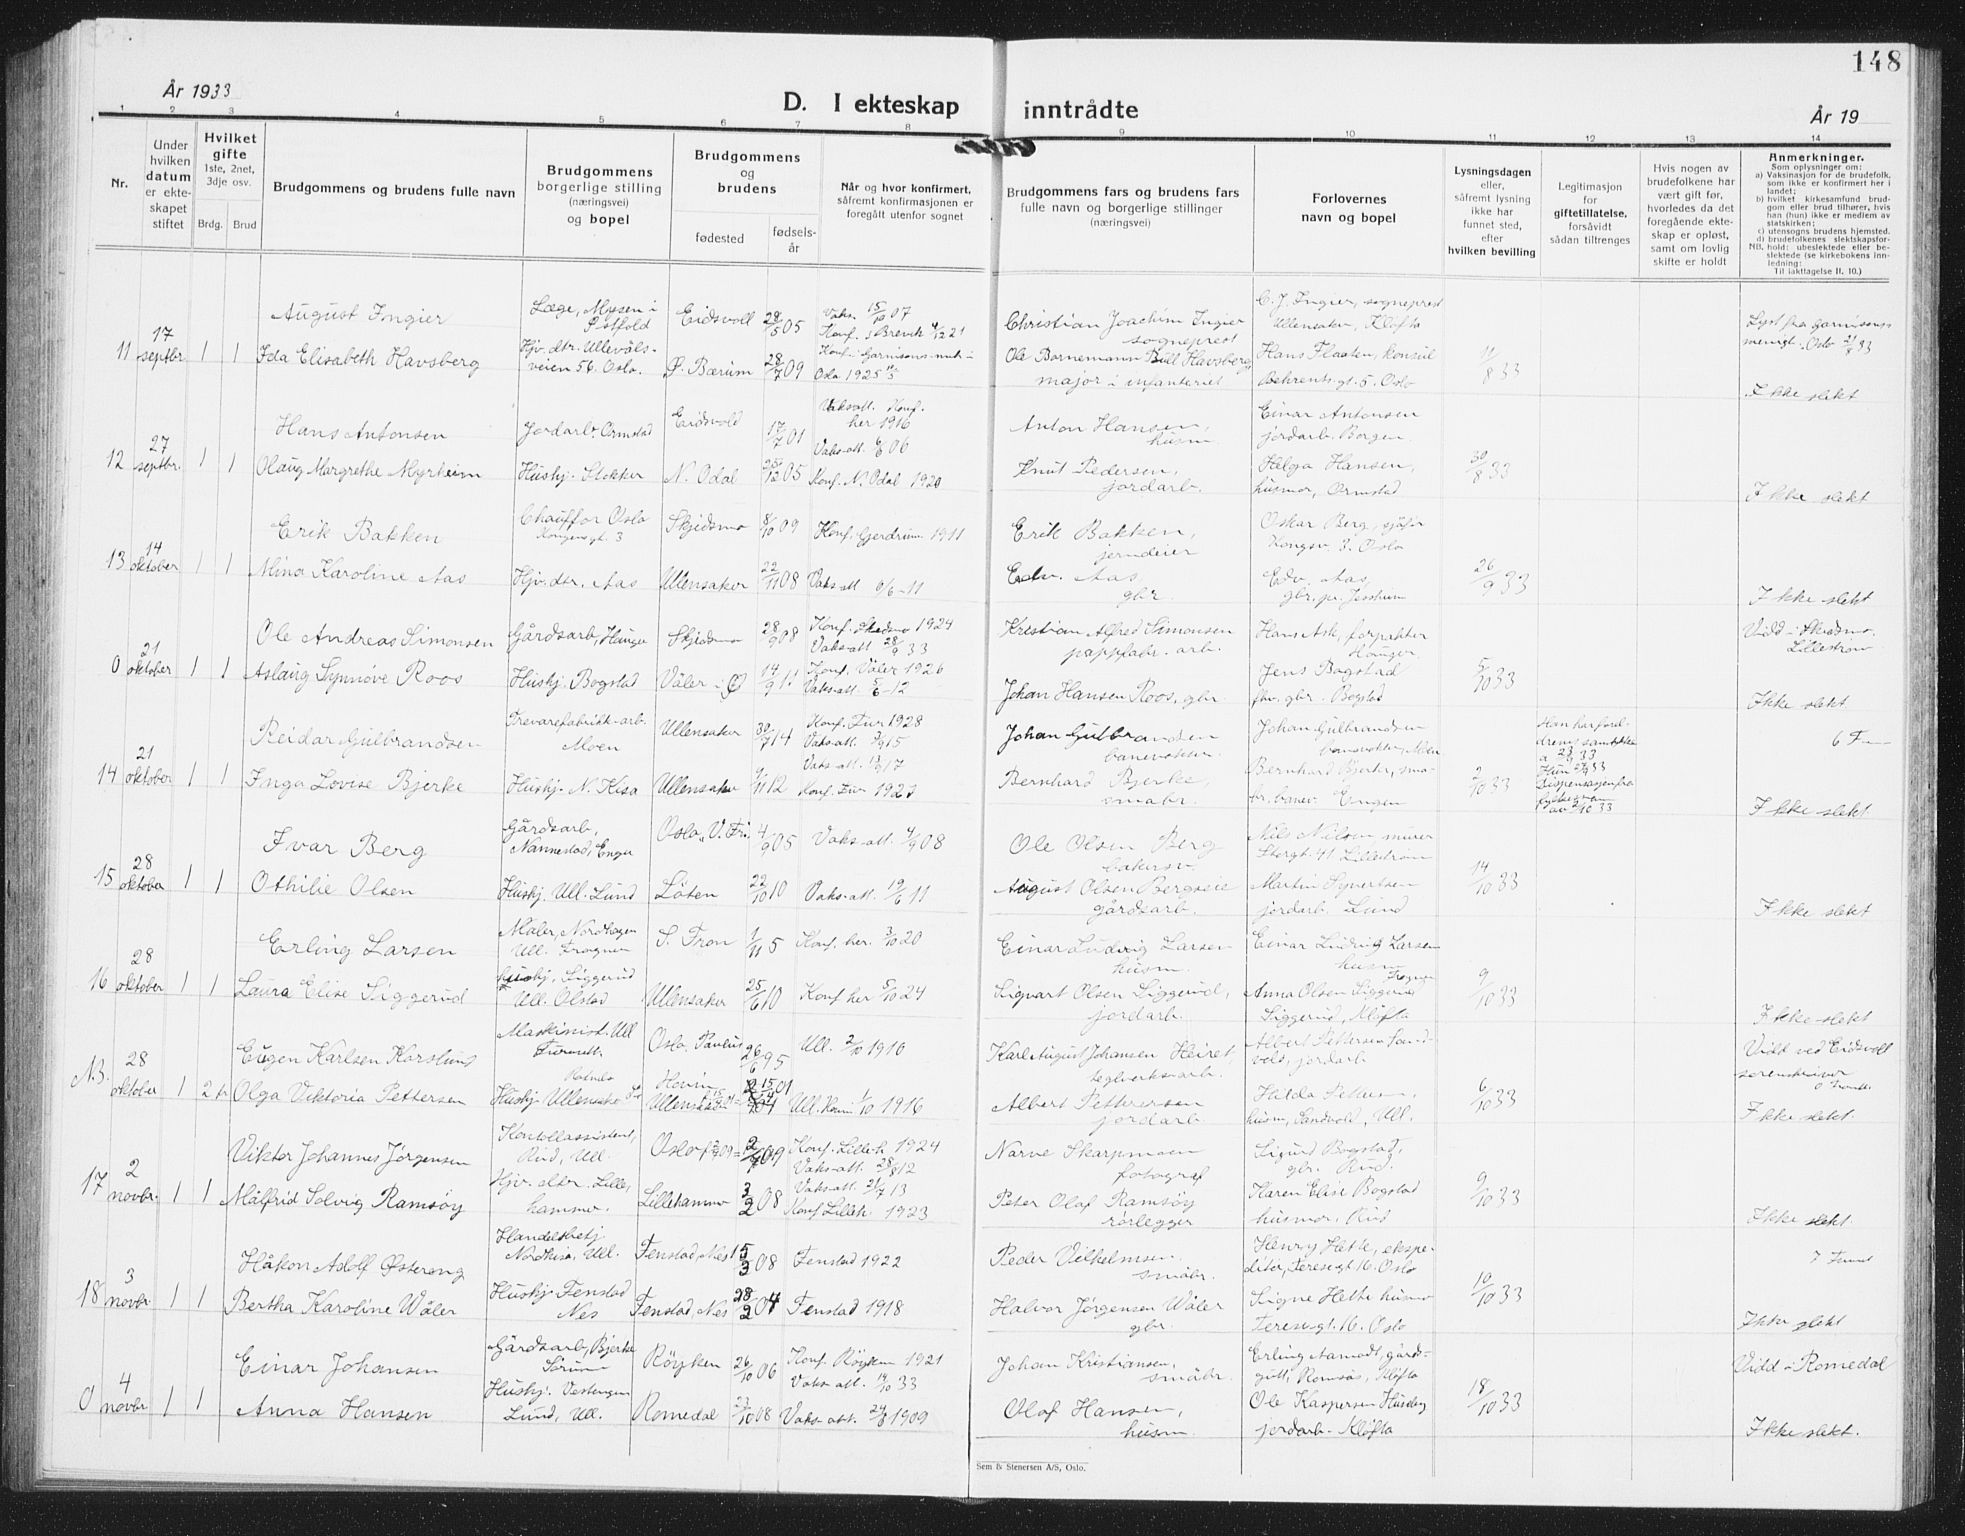 År 1933
148
D. I ekteskap inntrådte
År 19
1 2 3 4 5 6 7 8 9 10 11 12 13 14
Nr.
Under hvilken datum er ekteskapet stiftet
Hvilket gifte
1ste, 2net, 3dje osv.
Brdg. Brud
Brudgommens og brudens fulle navn
Brudgommens borgerlige stilling (næringsvei) og bopel
Brudgommens og brudens
fødested
fødselsår
Når og hvor konfirmert, såfremt konfirmasjonen er foregått utenfor sognet
Brudgommens fars og brudens fars fulle navn og borgerlige stillinger (næringsvei)
Forlovernes navn og bopel
Lysningsdagen eller, såfremt lysning ikke har funnet sted, efter hvilken bevilling
Legitimasjon for giftetillatelse, forsåvidt sådan tiltrenges
Hvis nogen av brudefolkene har vært gift før, hvorledes da det foregående ekteskap er opløst, samt om lovlig skifte er holdt
Anmerkninger.
Som oplysninger om:
a) Vaksinasjon for de brudefolk, som ikke er konfirmert her i landet;
b) hvilket kirkesamfund brudgom eller brud tilhører, hvis han (hun) ikke er medlem av statskirken;
c) utensogns brudens hjemsted.
d) brudefolkenes slektskapsforhold: ubeslektede eller beslektede (se kirkebokens innledning:
NB.
Til iakttagelse II. 10.)
11 17 septbr. 1 1
August Ingier
Ida Elisabeth Havsberg
Læge, Mysen i Østfold
Hjv. dtr. Ullevålsveien 56. Oslo.
Eidsvoll 28/5 05
Ø. Bærum 28/7 09
Vaks. 15/10 07
Konf. i Brevik 4/12 21
Konf. i Garnisons-menigh. Oslo 1925
Christian Joachim Ingier sogneprest
Ole Bornemann Bull Havsberg major i infanteriet
C. J. Ingier, sogneprest Ullensaker, Kløfta
Hans Flaaten, konsul Behrents gt. 5. Oslo
11/8 33
Lyst fra Garnisons menigt. Oslo 21/8 33
Ikke slekt
12 27 septbr. 1 1
Hans Antonsen
Olaug Margrethe Myrheim
Jordarb. Ormstad
Hushj. Slokker
Eidsvold 17/7 01
N. Odal 25/12 05
Vaks.att. Konf. her 1916
Vaks-att. 6/6 06
Konf. N. Odal 1920
Anton Hansen, husm.
Knut Pedersen, jordarb.
Einar Antonsen jordarb. Borgen.
Helga Hansen, husmor, Ormstad
30/8 33
Ikke slekt
13 14 oktober 1 1
Erik Bakken
Mina Karoline Aas
Chauffør Oslo Kongensgt. 3
Hjv. dtr. Aas
Skjedsmo 8/10 09
Ullensaker 22/11 08
Konf. Gjerdrum 1911
Vaks-att
Erik Bakken, jerndeier
Edv. Aas, gbr.
Oskar Berg, sjåfør Kongsv. 3. Oslo
Edv. Aas, gbr. pr. Jessheim
26/9 33
Ikke slekt
0 21 oktober 1 1
Ole Andreas Simonsen
Aslaug Synnøve Roos
Gårdsarb, Hauger
Hushj. Bogstad
Skjedsmo 28/9 08
Våler i Ø 14/9 11
Konf. Skedsmo 1924
Vaks-att 28/9 33
Konf. Våler 1926
Vaks-att. 5/6-12
Kristian Alfred Simonsen pappfabr. arb.
Johan Hansen Roos, gbr.
Hans Ask, forpakter Hauger.
Jens Bogstad fhv. gbr. Bogstad
5/10 33
Vidd i Skedsmo. Lillestrøm
Ikke slekt
14 21 oktober 1 1
Reidar Gulbrandsen
Inga Lovise Bjerke
Trevarefabrikk-arb. Moen
Hushj. N. Kisa
Ullensaker 30/7 14
Ullensaker 9/11 12
Konf. Fur 1928
Vaks-att. 3/9 15
Vaks-att. 13/9 17
Konf. Fur 1927
Johan Gulbrandsen banevokter.
Bernhard Bjerke, småbr.
Johan Gulbrandsen banevokter, Moen
Bernhard Bjerke, småbr. banev. Engen
2/10 33
Han har foreldrenes samtykke
Dispensasjon fra
av 2/10 33
Ikke slekt
15 28 oktober 1 1
Ivar Berg
Othilie Olsen
Gårdsarb, Nannestad, Enger
Hushj. Ull. Lund
Oslo, V. Fr. 4/9 05
Løten 22/10 10
Vaks-att. 4/9 08
Vaks-att. 19/6 11
Ole Olsen Berg bakersv.
August Olsen Bergseie gårdsarb.
Nils Nilsen murer Storgt. 41 Lillestrøm
Martin Syvertsen jordarb. Lund
14/10 33
Ikke slekt
16 28 oktober 1 1
Erling Larsen
Laura Elise Siggerud
Maler, Nordhagen Ull. Frogner
Hushj. Siggerud Ull. Ølstad
S. Fron 1/11 5
Ullensaker 25/6 10
Konf. her. 3/10 20
Konf her 5/10 24
Einar Ludvig Larsen husm.
Sigvart Olsen Siggerud, jordarb.
Einar Ludvig Larsen husm Frogner
Anna Olsen Siggerud Siggerud, Kløfta
9/10 33
Ikke slekt
N.B. 28 oktober 1 2
Eugen Karlsen Korslund
Olga Viktoria Pettersen
Maskinist. Ull
Hushj. Ullensaker
Oslo, Paulus 26/6 95
Hovin Ullensaker
Ull. 2/10 1910
Ull. Hovin 1/10 1916
Karl August Johansen Heiret, teglverksarb.
Albert Pettersen jordarb
Albert Pettersen Sandvold, jordarb
Hilda Pettersen, husm, Sandvold, Ull.
6/10 33
Vidd ved Eidsvoll sorenskriver
Ikke slekt.
17 2 novbr. 1 1
Viktor Johannes Jørgensen
Målfrid Solveig Ramsøy
Kontorassistent, Rud, Ull.
Hjv. dtr. Lillehammer.
Oslo
Lillehammer 3/2 08
Konf. Lilleh. 1924
Vaks-att. 28/8 12
Vaks-att. 21/7 13
Konf Lilleh. 1923
Narve Skarpmoen fotograf
Peter Olaf Ramsøy rørlegger
Sigurd Bogstad, gbr. Rud.
Karen Elise Bogstad husmor, Rud
9/10 33
Ikke slekt.
18 3 novbr 1 1
Håkon Adolf Østereng
Bertha Karoline Wåler
Handelsbetj Nordkisa, Ull.
Hushj. Fenstad Nes
Fenstad, Nes 15/3 08
Fenstad, Nes 28/2 04
Fenstad 1922
Fenstad 1918
Peder Vilhelmsen småbr.
Halvor Jørgensen Wåler gbr.
Henry Hette, ekspeditør, Teresegt 16. Oslo
Signe Hette husmo Teresegt. 16. Oslo
10/10 33
Ikke slekt
0 4 novbr 1 1
Einar Johansen
Anna Hansen
Gårdsarb, Bjerke Sørum
Hushj. Vestengen Lund, Ull.
Røyken 26/10 06
Romedal 23/10 08
Konf. Røyken 1921
Vaks-att. 14/10 33
Vaks-att. 24/8 1909
Johan Kristiansen, småbr.
Olaf Hansen, husm.
Erling Aamodt, gårdsgutt, Ramsås, Kløfta
Ole Kaspersen Huseby jordarb. Kløfta
18/10 33
Vidd i Romedal
Ikke slekt.
Sem & Stenersen A/S, Oslo.